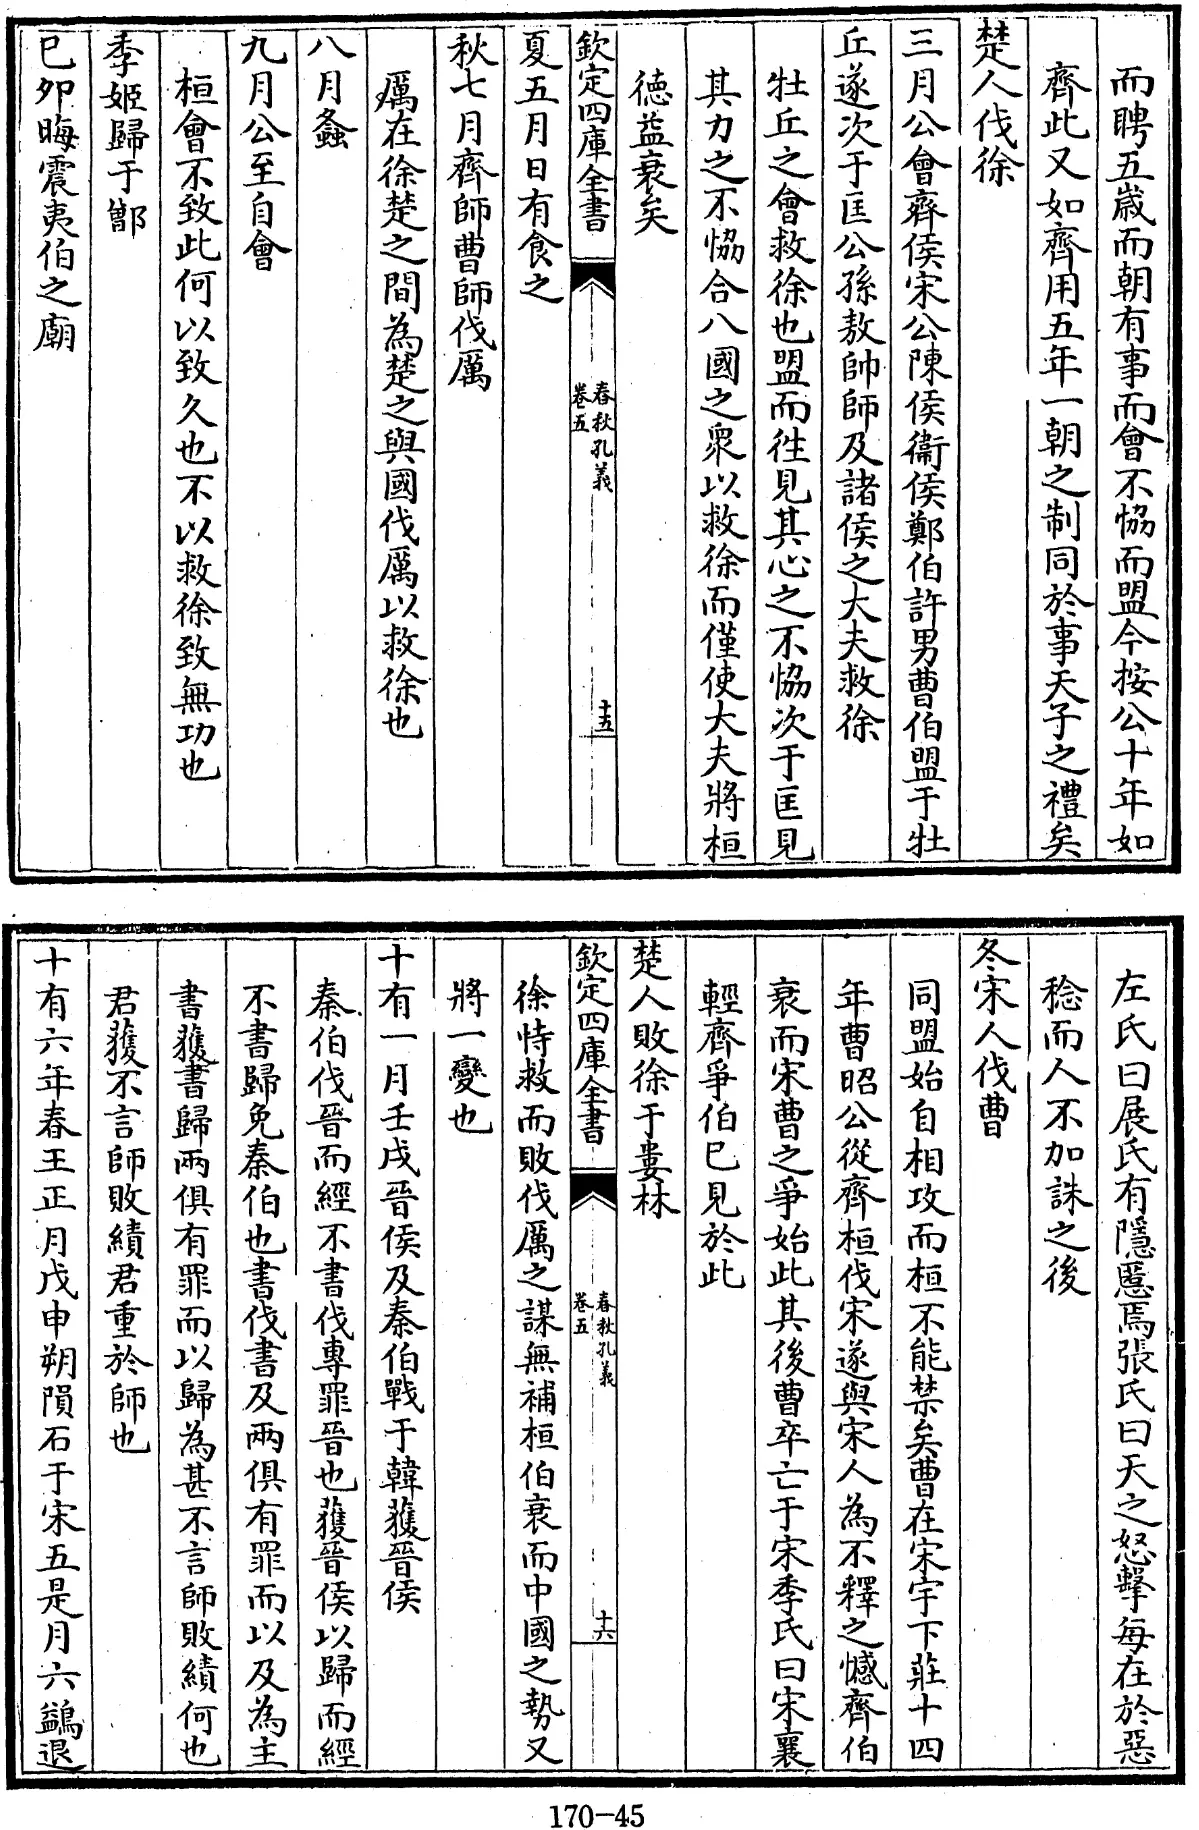 而聘五歳而朝有事而會不恊而盟今按公十年如
齊此又如齊用五年一朝之制同於事天子之禮矣
楚人伐徐
三月公會齊侯宋公陳侯衞侯鄭伯許男曹伯盟于牡
丘遂次于匡公孫敖帥師及諸侯之大夫救徐
牡丘之會救徐也盟而徃見其心之不恊次于匡見
其力之不恊合八國之衆以救徐而僅使大夫將桓
徳益衰矣
欽定四庫全書
春秋孔義
卷五
十五
夏五月日有食之
秋七月齊師曹師伐厲
厲在徐楚之間為楚之與國伐厲以救徐也
八月螽
九月公至自會
桓會不致此何以致久也不以救徐致無功也
季姬歸于鄫
已夘晦震夷伯之廟
左氏曰展氏有隠慝焉張氏曰天之怒擊每在於惡
稔而人不加誅之後
冬宋人伐曹
同盟始自相攻而桓不能禁矣曹在宋宇下莊十四
年曹昭公從齊桓伐宋遂與宋人為不釋之憾齊伯
衰而宋曹之爭始此其後曹卒亡于宋季氏曰宋襄
輕齊爭伯已見於此
楚人敗徐于婁林
欽定四庫全書
春秋孔義
卷五
十六
徐恃救而敗伐厲之謀無補桓伯衰而中國之勢又
將一變也
十有一月壬戌晉侯及秦伯戰于韓獲晉侯
秦伯伐晉而經不書伐專罪晉也獲晉侯以歸而經
不書歸免秦伯也書伐書及兩俱有罪而以及為主
書獲書歸兩俱有罪而以歸為甚不言師敗績何也
君獲不言師敗績君重於師也
十有六年春王正月戊申朔隕石于宋五是月六鷁退
170-45